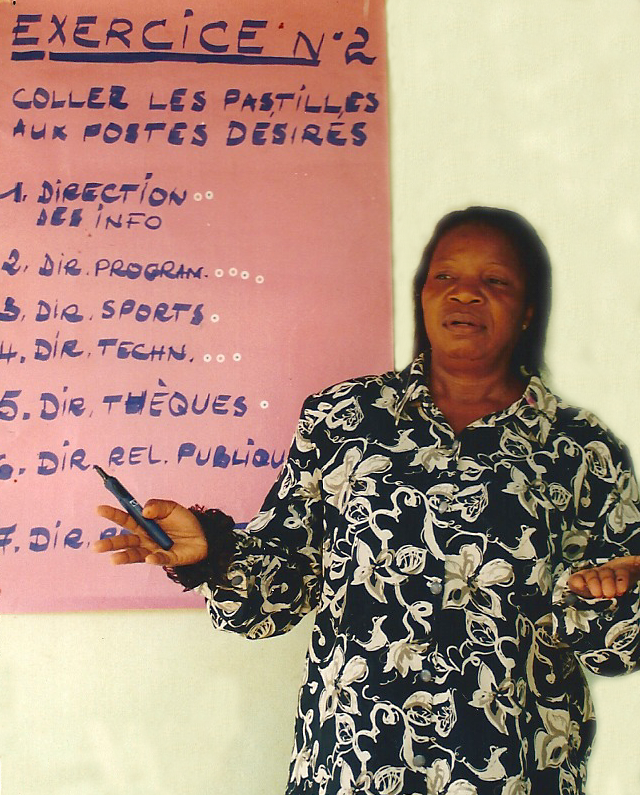 EXERCICE N°2
COLLER LES PASTILLES
AUX POSTES DÉSIRÉS
1. DIRECTION
DES INFO
2. DIR. PROGRAM.
3. DIR. SPORTS
4. DIR. TECHN.
5. DIR. THÈQUES
6. DIR. REL. PUBLIQU
7. DIR.